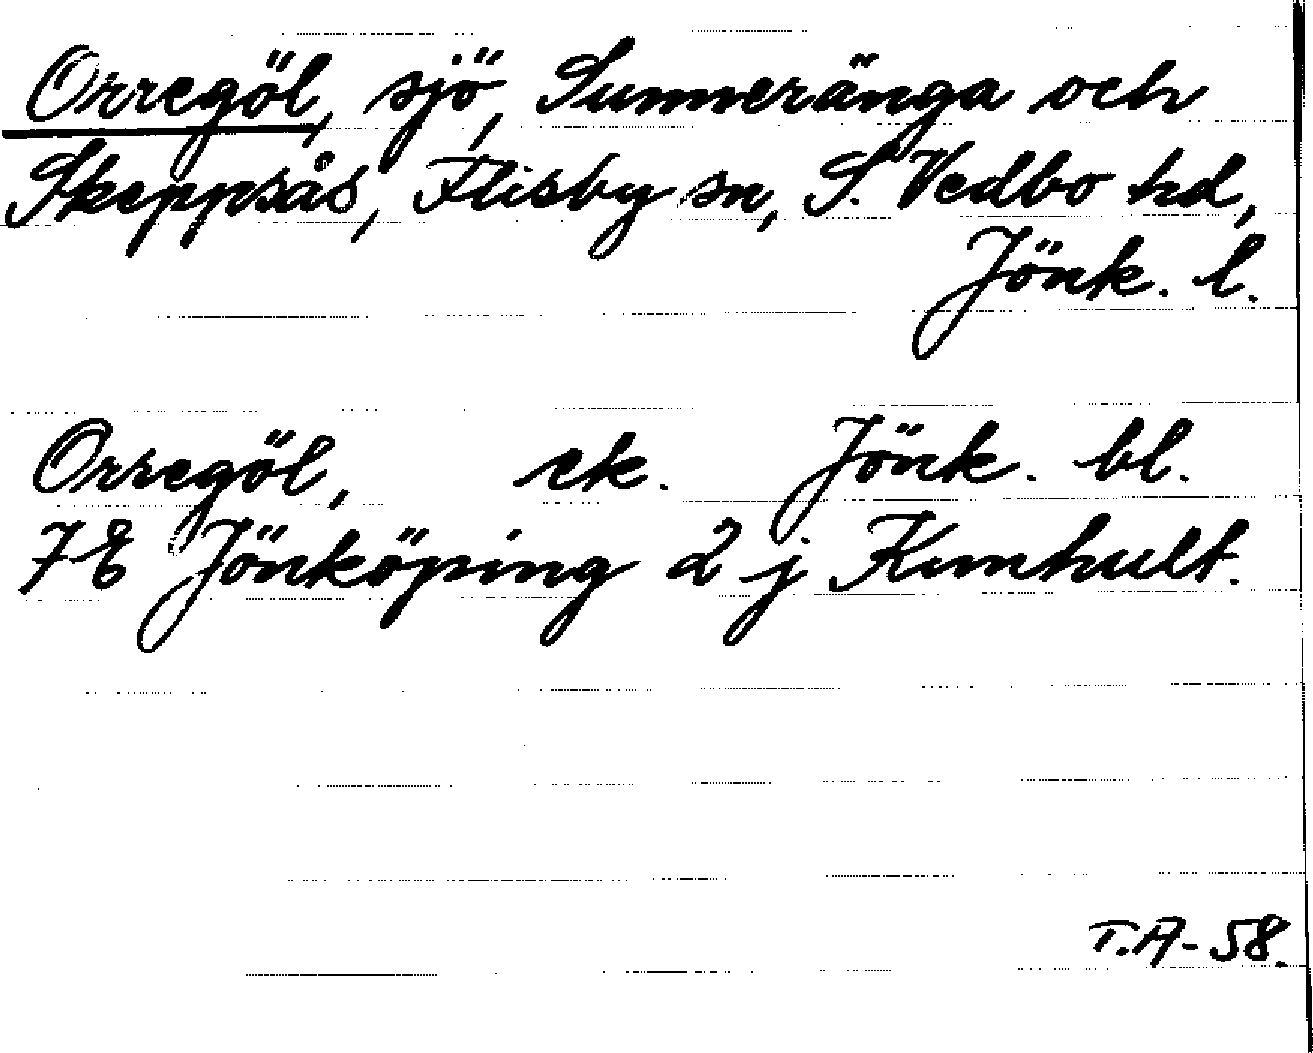 Orregöl, sjö, Sunneränga och
Skeppsås, Flisby sn, S. Vedbo hd,
Jönk. l.
Orregöl, ek. Jönk. bl.
7E Jönköping 2 j Kumhult.
T.A-58.